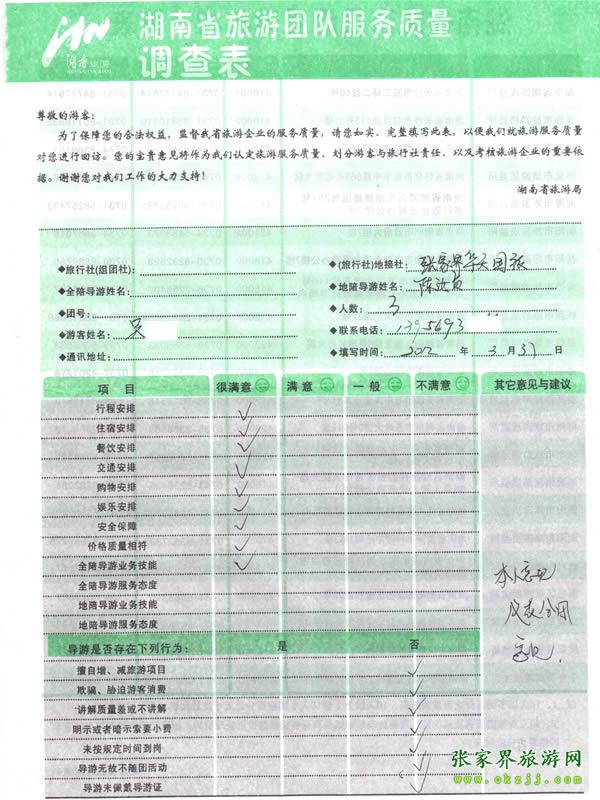 湖南省旅游团队服务质量
调查表
湖南旅游
尊敬的游客：
为了保障您的合法权益，监督我省旅游企业的服务质量，请您如实、完整填写此表，以便我们就旅游服务质量
对您进行回访。您的宝贵意见将作为我们认定旅游服务质量、划分游客与旅行社责任、以及考核旅游企业的重要依
据。谢谢您对我们工作的大力支持！
湖南省旅游局
◆旅行社(组团社)： ◆(旅行社)地接社：张家界华天国旅
◆全陪导游姓名： ◆地陪导游姓名：陈
◆团号： ◆人数：3
◆游客姓名：吴 ◆联系电话：1395693
◆通讯地址： ◆填写时间：2012 年 3 月 31 日
项 目 很满意 满 意 一 般 不满意 其它意见与建议
行程安排 ✓
住宿安排 ✓
餐饮安排 ✓
交通安排 ✓
购物安排 ✓
娱乐安排 ✓
安全保障 ✓
价格质量相符 ✓
全陪导游业务技能 ✓
全陪导游服务态度
地陪导游业务技能
地陪导游服务态度
本人意见
代表全团
意见.
导游是否存在下列行为： 是 否
擅自增、减旅游项目 ✓
欺骗、胁迫游客消费 ✓
讲解质量差或不讲解 ✓
明示或者暗示索要小费 ✓
未按规定时间到岗 ✓
导游无故不随团活动 ✓
导游未佩戴导游证 ✓
张家界旅游网
www.okzjj.com